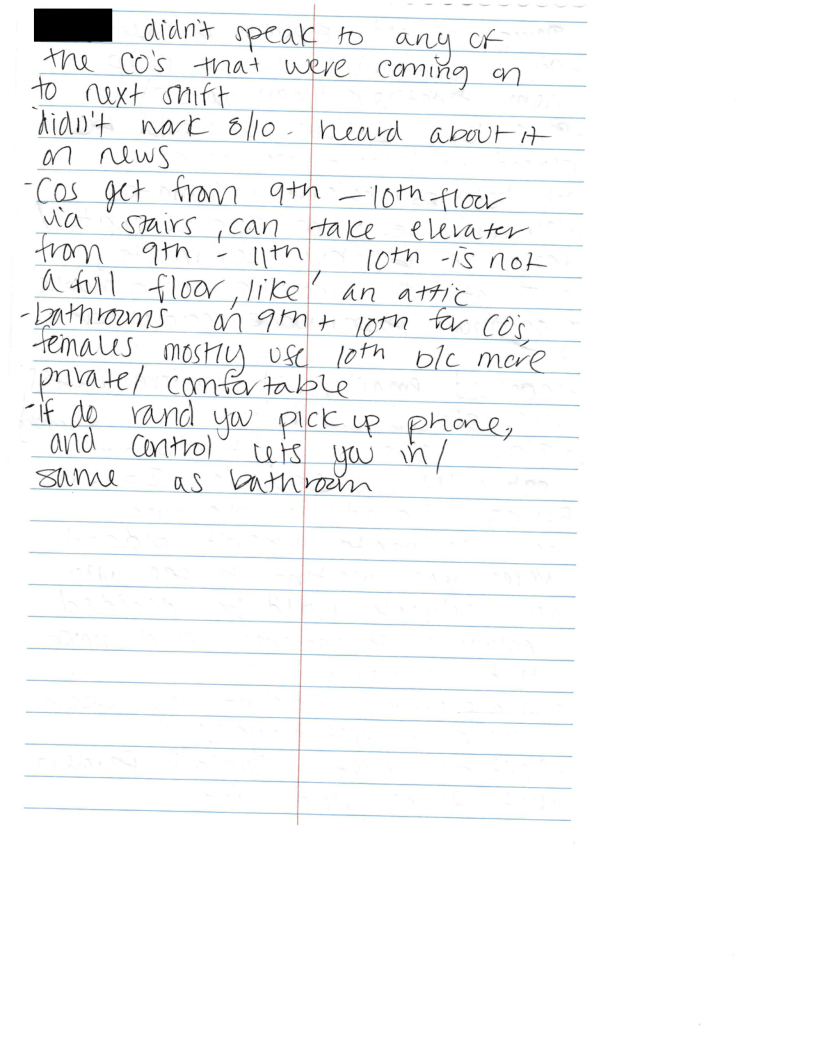 didn't speak to any of
the CO's that were coming on
to next shift
didn't work 8/10. heard about it
on news
-COs get from 9th - 10th floor
via stairs, can take elevater
from 9th - 11th, 10th - is not
a full floor, like an attic
-bathrooms on 9th + 10th for CO's,
females mostly use 10th b/c more
private/ comfortable
-if do round you pick up phone,
and control lets you in/
same as bathroom